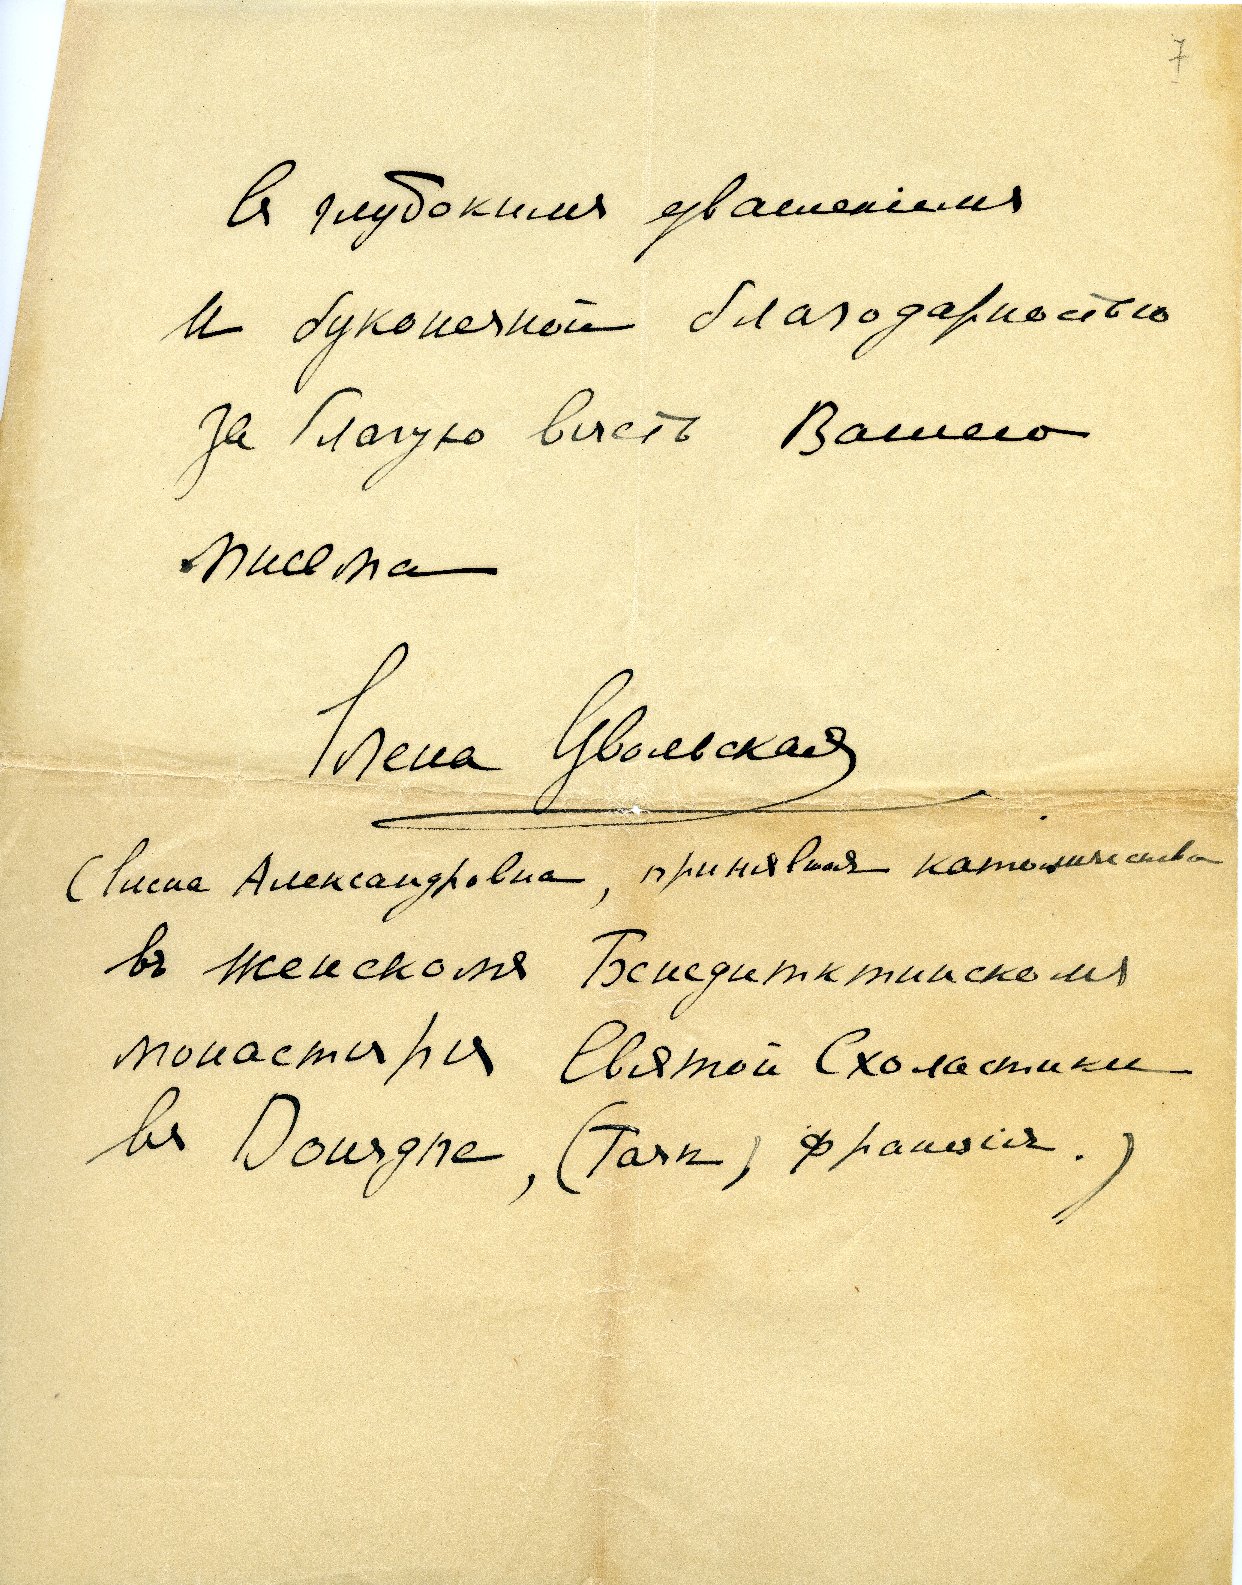 7
Съ глубокимъ уваженіемъ
и безконечной благодарностью
за благую вѣсть Вашего
письма
Елена Извольская
(Елена Александровна, принявшая католичество
въ женскомъ Бенедиктинскомъ
монастырѣ Святой Схоластики
въ Dourgne, (Тарн) Франція.)